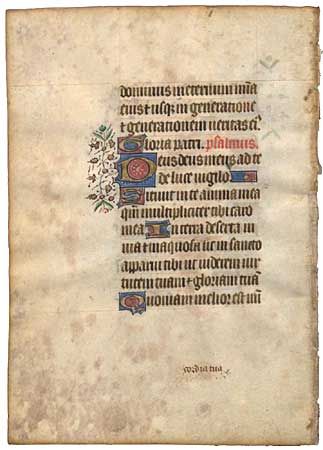 dominus in eternum mīa
eius ⁊ usq; in generatione
⁊ generationem veritas ei'.
Gloria patri. psalmus.
Deus deus meus ad te
de luce vigilo
Sitiuit in te anima mea
quā multipliciter tibi caro
mea In terra deserta in
uia ⁊ inaquosa sic in sancto
apparui tibi ut viderem vir
tutem tuam ⁊ gloriam tuā
Quoniam melior est mi
cordia tua